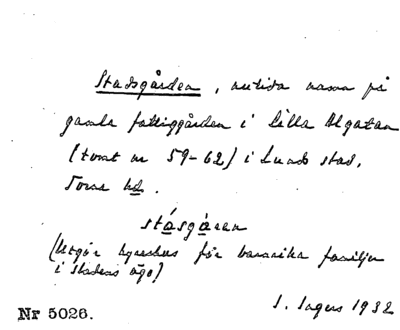 Stadsgården, nutida namn på
gamla fattiggården i Lilla Algatan
(tomt nr 59-62) i Lunds stad.
Torna hd.
stásgàren
(Utgör hyreshus för barnrika familjer
i stadens ägo)
I. Ingers 1932
Nr 5026.